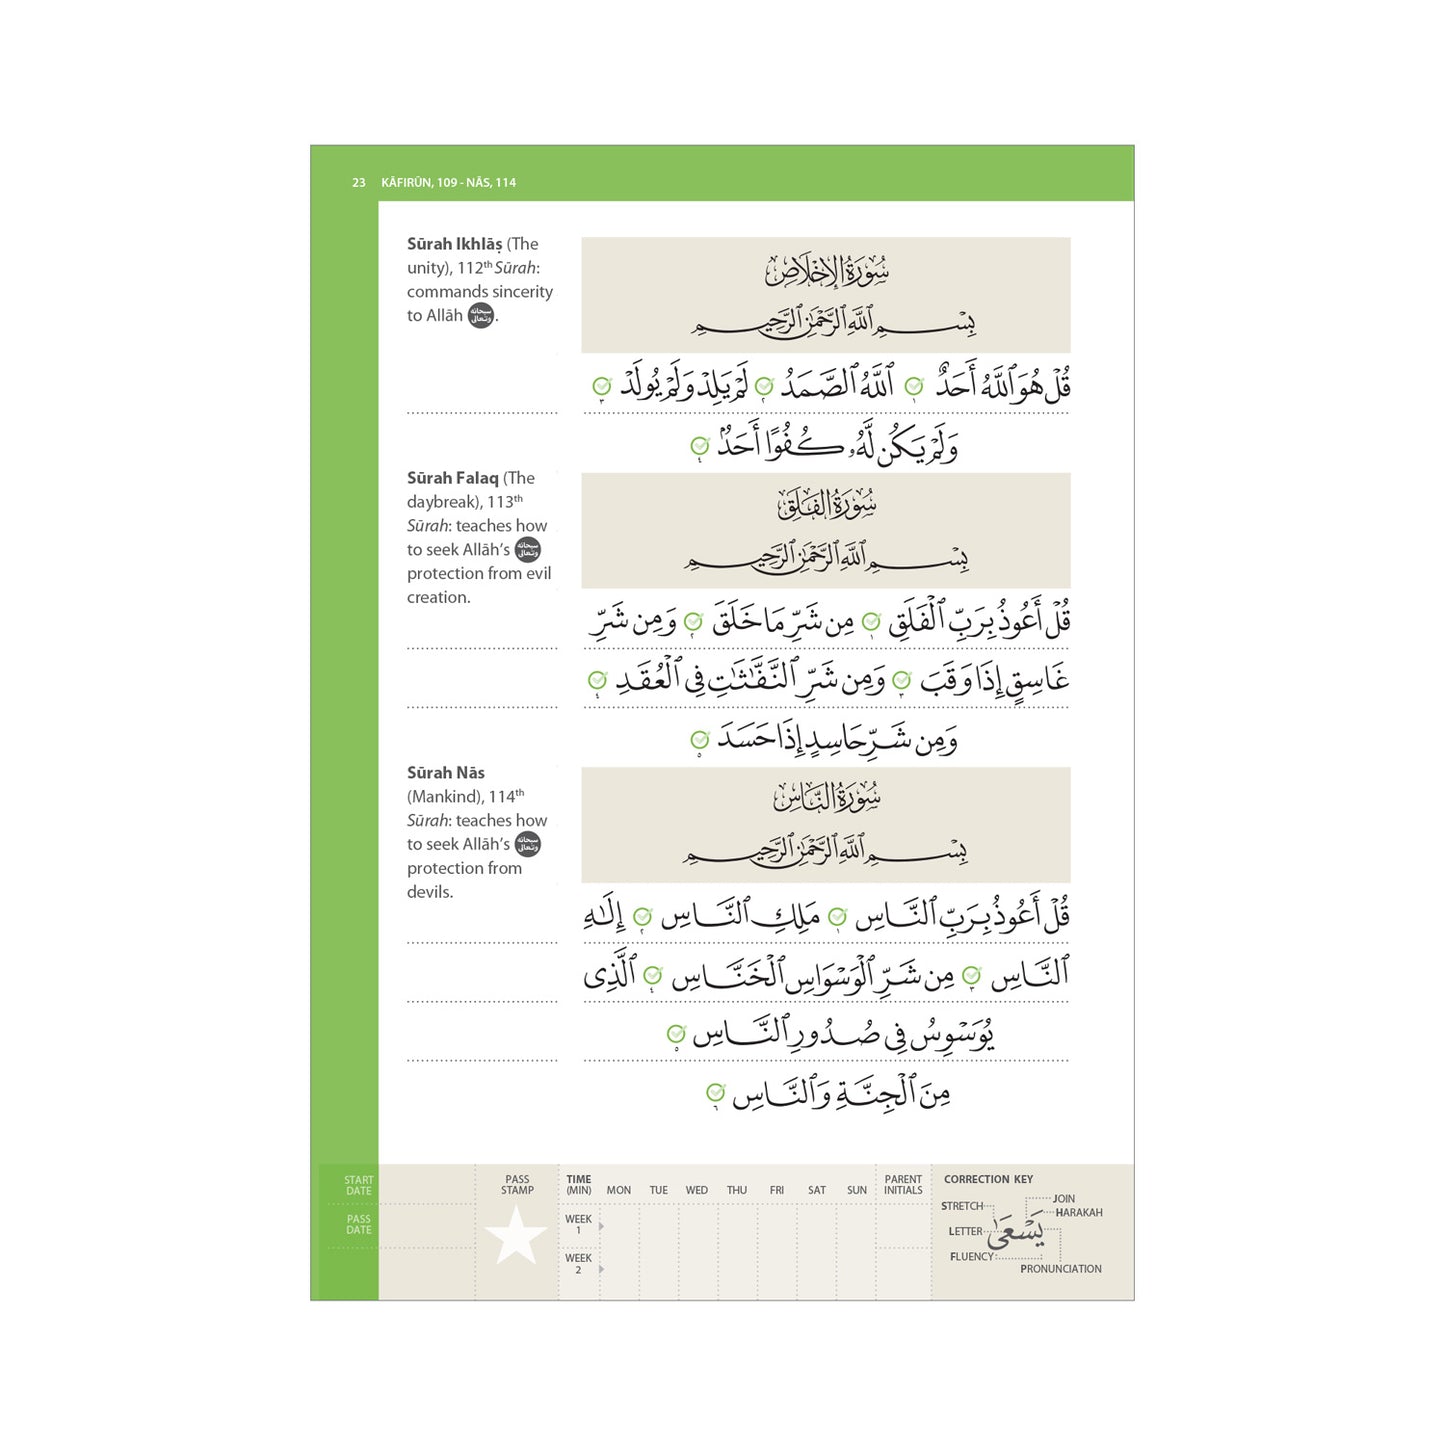 23 KĀFIRŪN, 109 - NĀS, 114
Sūrah Ikhlāṣ (The
unity), 112th Sūrah:
commands sincerity
to Allāh سبحانه وتعالى.
سُورَةُ الإِخْلَاصِ
بِسْمِ ٱللَّهِ ٱلرَّحْمَٰنِ ٱلرَّحِيمِ
قُلْ هُوَ ٱللَّهُ أَحَدٌ ١ ٱللَّهُ ٱلصَّمَدُ ٢ لَمْ يَلِدْ وَلَمْ يُولَدْ ٣
وَلَمْ يَكُن لَّهُۥ كُفُوًا أَحَدٌۢ ٤
Sūrah Falaq (The
daybreak), 113th
Sūrah: teaches how
to seek Allāh's سبحانه وتعالى
protection from evil
creation.
سُورَةُ الفَلَقِ
بِسْمِ ٱللَّهِ ٱلرَّحْمَٰنِ ٱلرَّحِيمِ
قُلْ أَعُوذُ بِرَبِّ ٱلْفَلَقِ ١ مِن شَرِّ مَا خَلَقَ ٢ وَمِن شَرِّ
غَاسِقٍ إِذَا وَقَبَ ٣ وَمِن شَرِّ ٱلنَّفَّٰثَٰتِ فِى ٱلْعُقَدِ ٤
وَمِن شَرِّ حَاسِدٍ إِذَا حَسَدَ ٥
Sūrah Nās
(Mankind), 114th
Sūrah: teaches how
to seek Allāh's سبحانه وتعالى
protection from
devils.
سُورَةُ النَّاسِ
بِسْمِ ٱللَّهِ ٱلرَّحْمَٰنِ ٱلرَّحِيمِ
قُلْ أَعُوذُ بِرَبِّ ٱلنَّاسِ ١ مَلِكِ ٱلنَّاسِ ٢ إِلَٰهِ
ٱلنَّاسِ ٣ مِن شَرِّ ٱلْوَسْوَاسِ ٱلْخَنَّاسِ ٤ ٱلَّذِى
يُوَسْوِسُ فِى صُدُورِ ٱلنَّاسِ ٥
مِنَ ٱلْجِنَّةِ وَٱلنَّاسِ ٦
START
DATE
PASS
DATE
PASS
STAMP
TIME
(MIN) MON TUE WED THU FRI SAT SUN
WEEK
1
WEEK
2
PARENT
INITIALS
CORRECTION KEY
JOIN
STRETCH
HARAKAH
LETTER
يَسْعَىٰ
FLUENCY
PRONUNCIATION